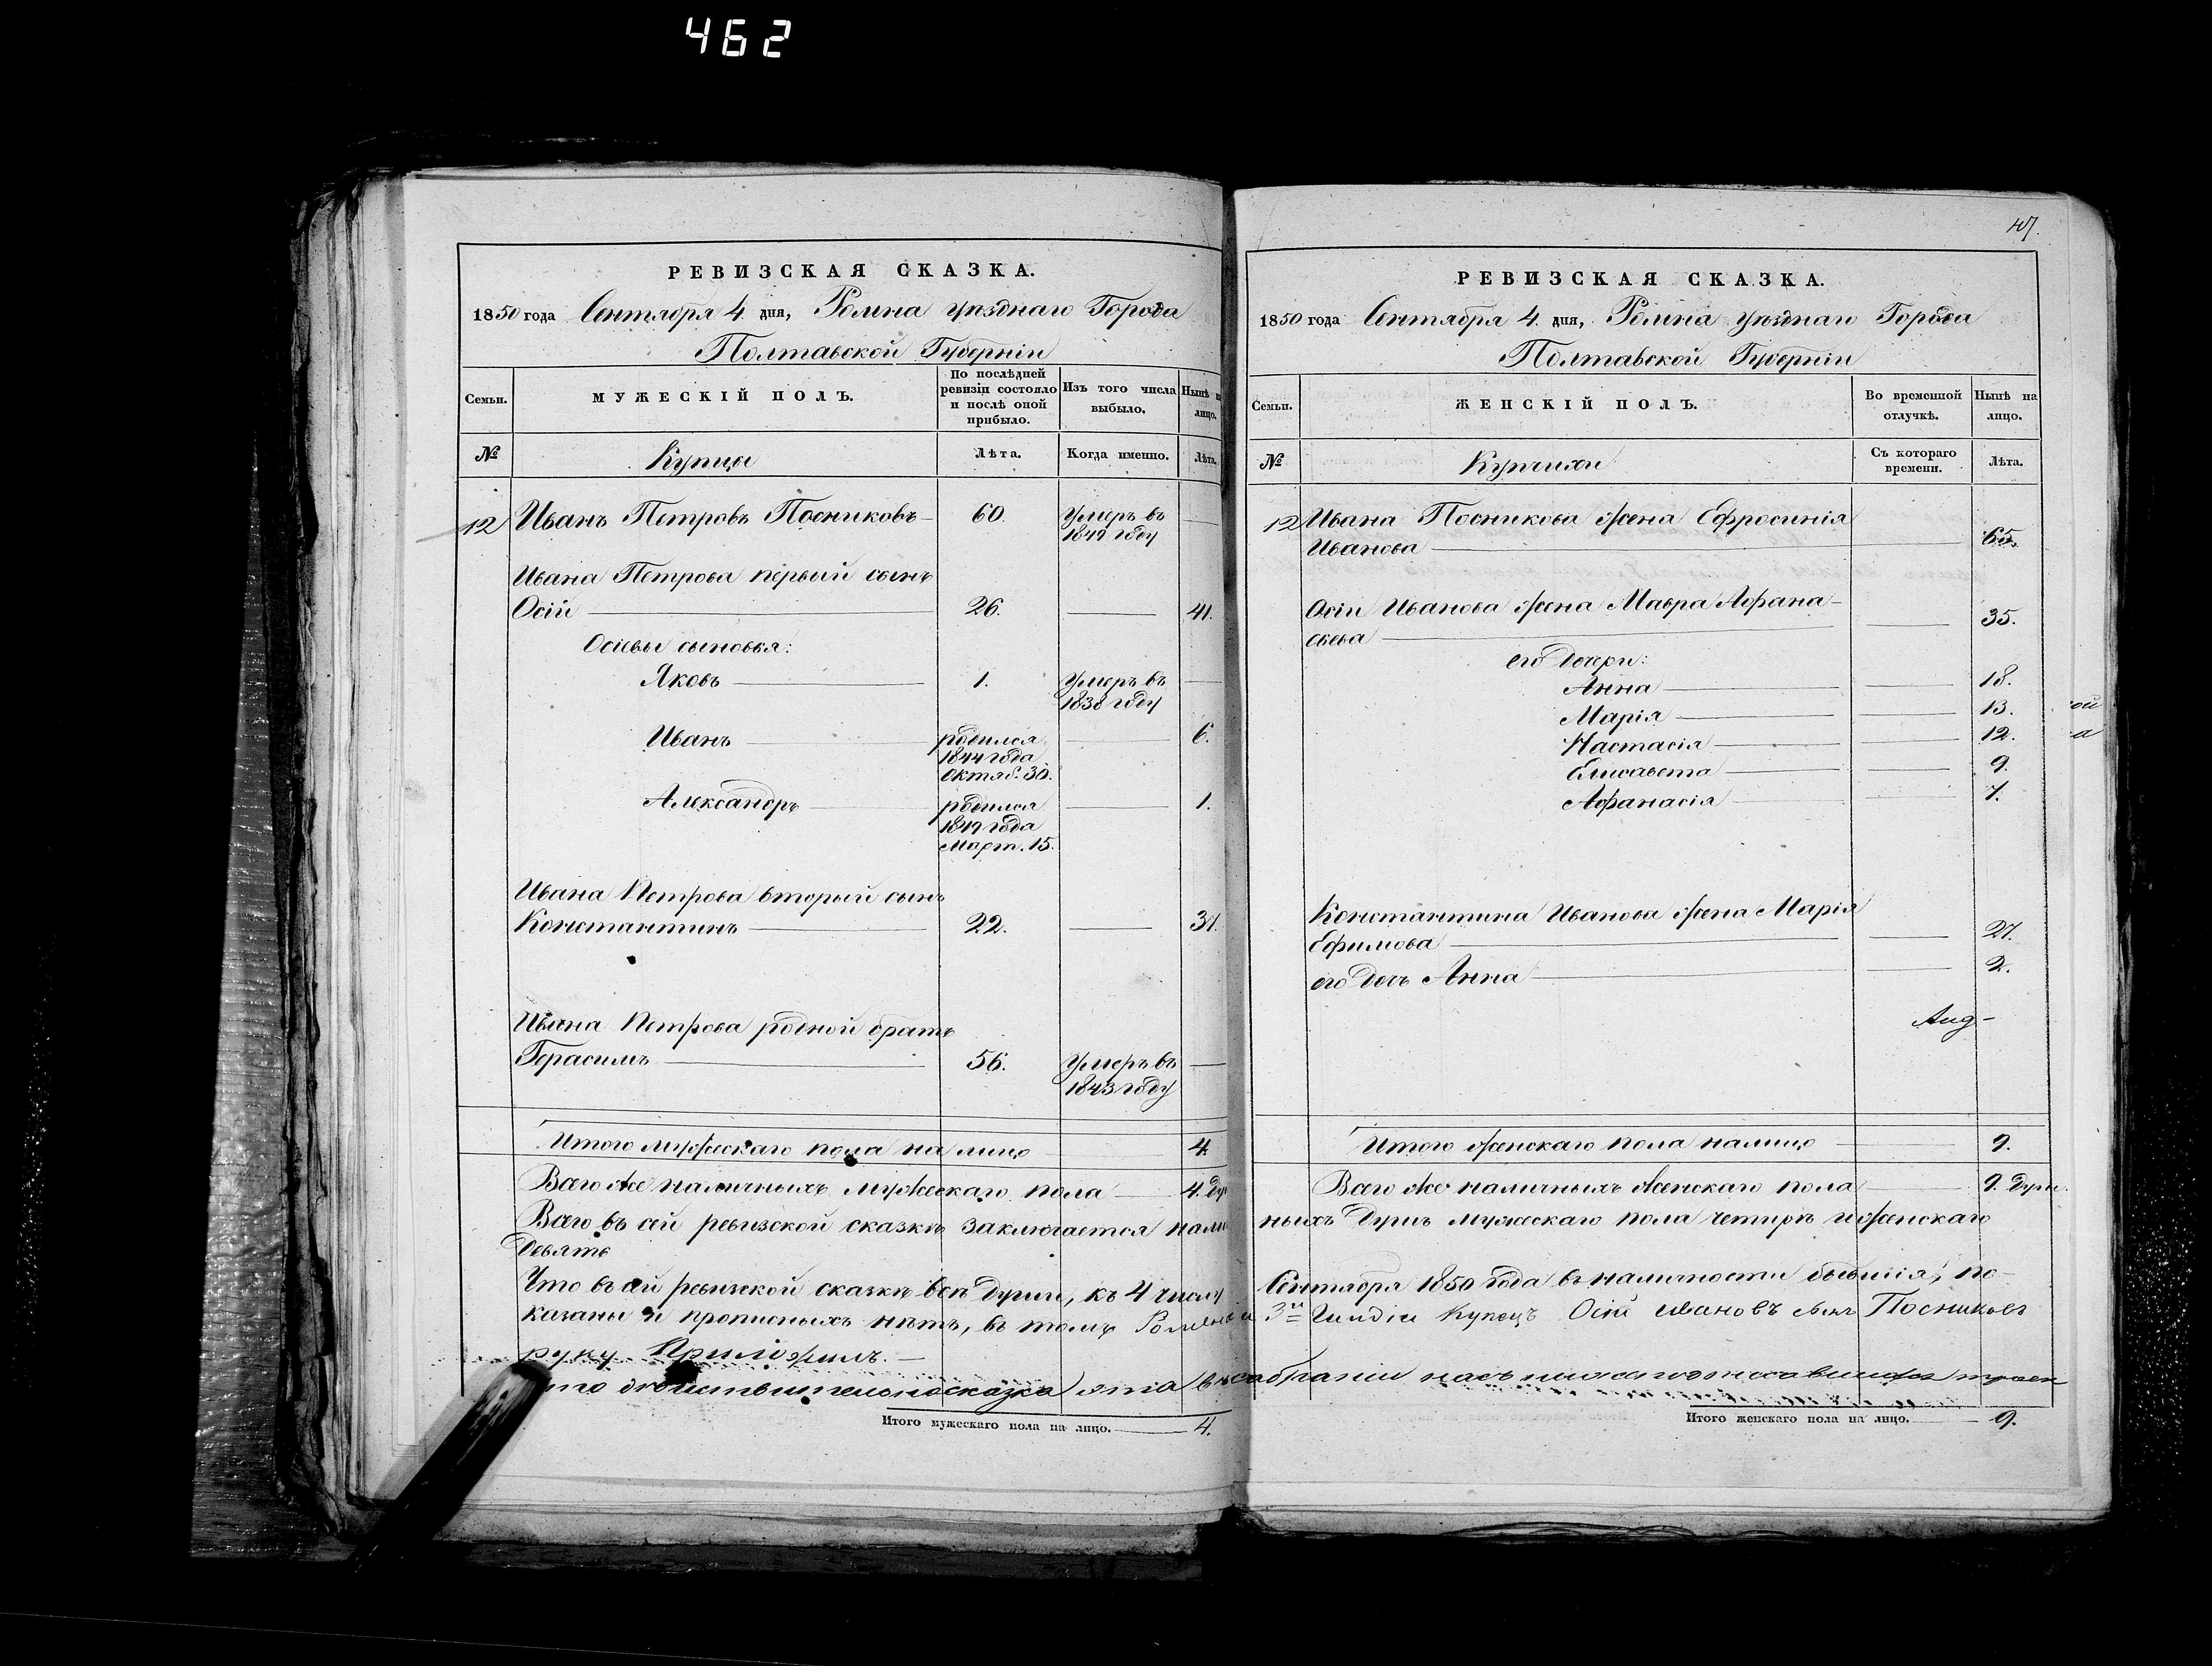 462
РЕВИЗСКАЯ СКАЗКА.
1850 года Сентября 4 дня, Ромна уѣзднаго Города
Полтавской Губерніи
Семьи.
МУЖЕСКІЙ ПОЛЪ.
По послѣдней ревизіи состояло и послѣ оной прибыло.
Изъ того числа выбыло.
Нынѣ н лицо.
№
Купцы
Лѣта.
Когда именно.
Лѣта.
12 Иванъ Петровъ Посниковъ 60. Умеръ въ
1849 году
Ивана Петрова первый сынъ
Осій 26. 41.
Осіевы сыновья:
Яковъ 1. Умеръ въ
1838 году
Иванъ родился 6.
1844 года
Октяб. 30.
Александръ родился 1.
1849 года
Март. 15.
Ивана Петрова вторый сынъ
Константинъ 22. 37.
Ивана Петрова родной братъ
Герасимъ 56. Умеръ въ
1843 году
Итого мужескаго пола на лицо 4.
Всего же наличныхъ мужескаго пола 4. ду
Всего въ сей ревизской сказкѣ заключается нали
девять
Что въ сей ревизской сказкѣ всѣ души, къ 4 числу
казаны и прописныхъ нѣтъ, въ томъ Роменскій
руку Приложилъ.
Итого мужескаго пола на лицо. 4.
47.
РЕВИЗСКАЯ СКАЗКА.
1850 года Сентября 4 дня, Ромна уѣзднаго Города
Полтавской Губерніи
Семьи.
ЖЕНСКІЙ ПОЛЪ.
Во временной отлучкѣ.
Нынѣ на лицо.
№
Купчихи
Съ котораго времени.
Лѣта.
12 Ивана Посникова жена Ефросинія
Иванова 65.
Осіи Иванова жена Мавра Афана-
сьева 35.
его дочери:
Анна 18.
Марія 13.
Настасія 12.
Елисавета 9.
Афанасія 7.
Константина Иванова жена Марія
Ефимова 27.
его дочь Анна 2.
Итого женскаго пола налицо 9.
Всего же наличныхъ женскаго пола 9. душ.
ныхъ душъ мужескаго пола четыре и женскаго
Сентября 1850 года въ наличности бывшія, по-
3й Гильдіи Купецъ Осій Ивановъ сынъ Посниковъ
Итого женскаго пола на лицо. 9.